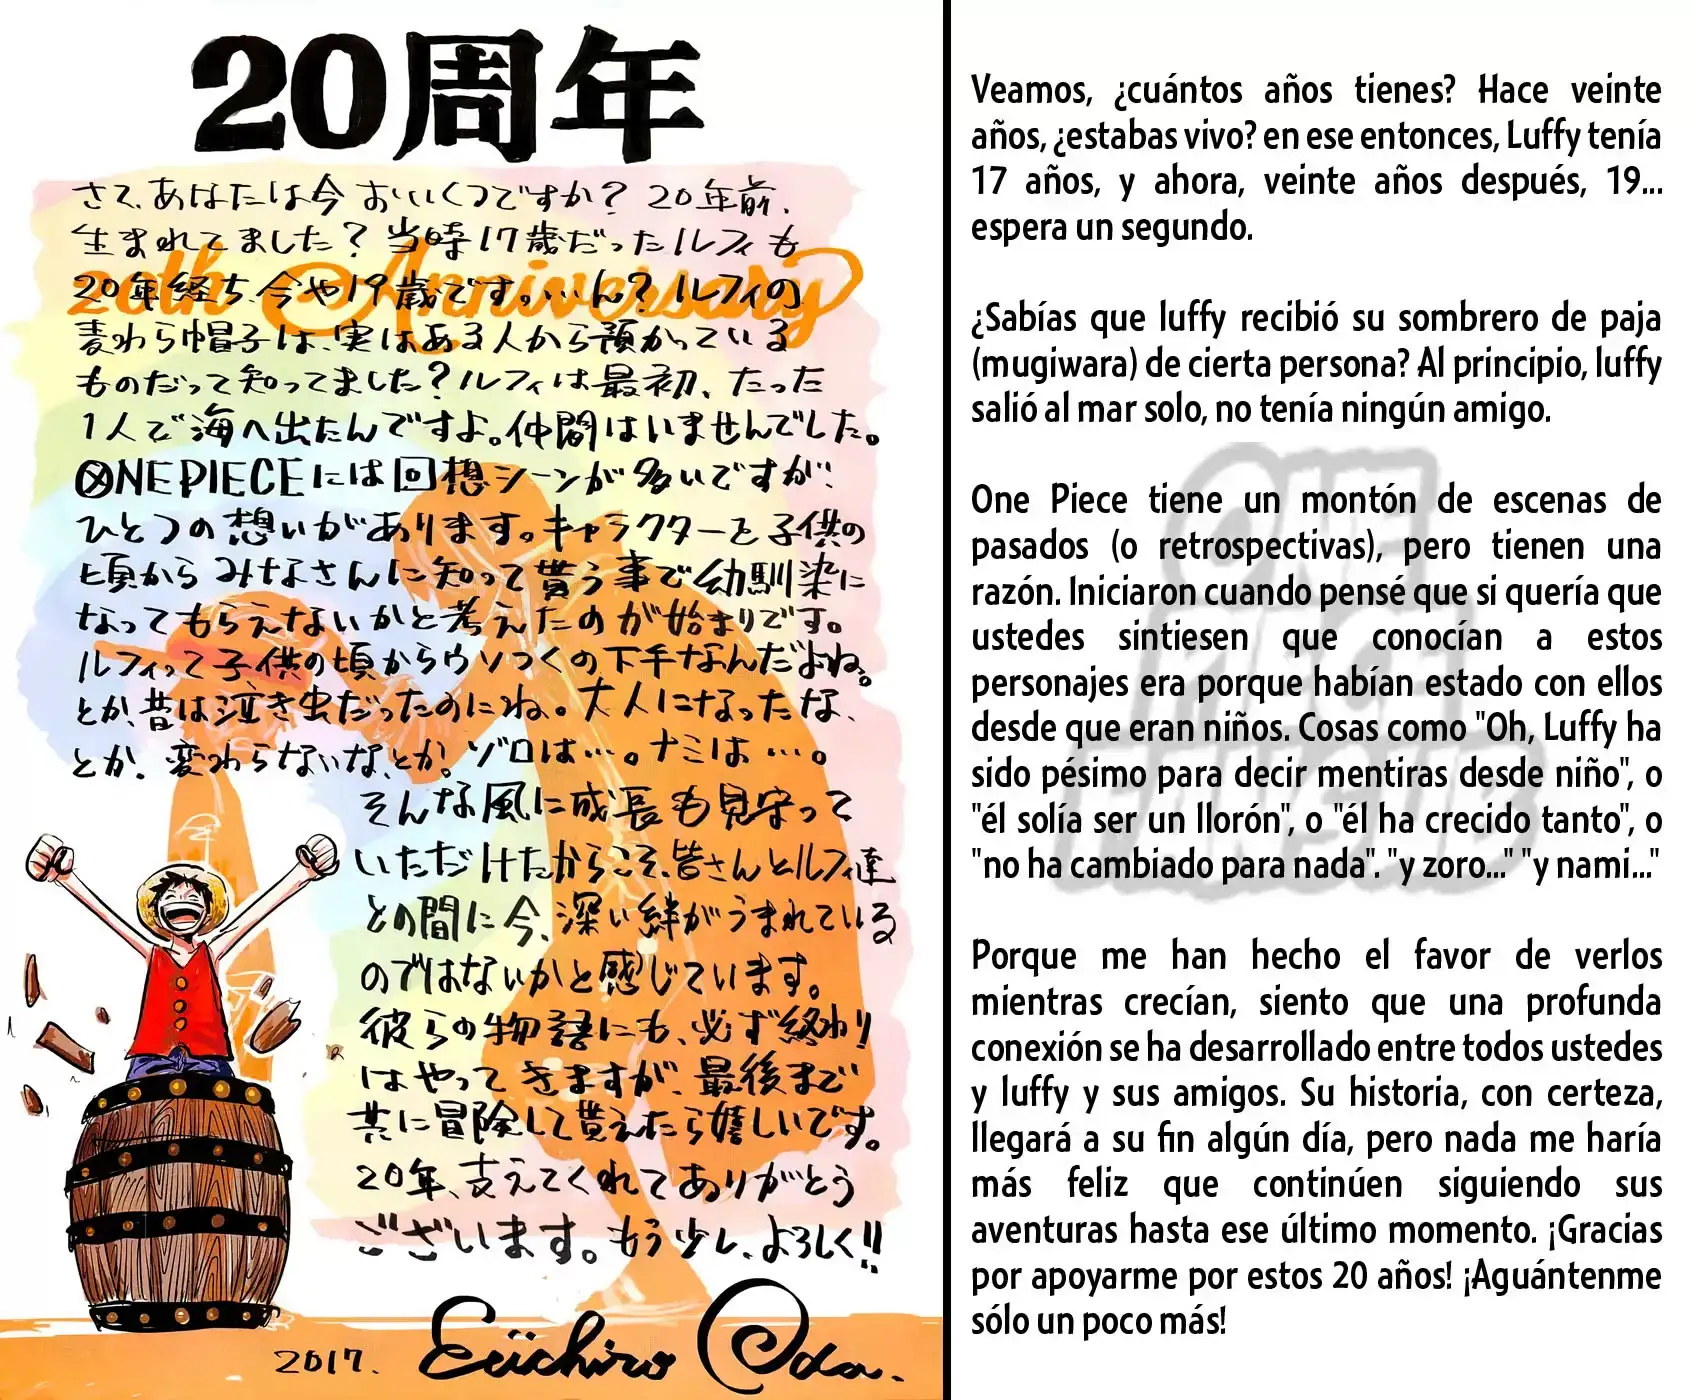 20周年
さて、あなたは今おいくつですか？ 20年前、
生まれてました？当時17歳だったルフィも
20th Anniversary
20年経ち、今や19歳です。…ん？ルフィの
麦わら帽子は、実はある人から預かっている
ものだって知ってました？ルフィは最初、たった
1人で海へ出たんですよ。仲間はいませんでした。
ONE PIECEには回想シーンが多いですが、
ひとつの想いがあります。キャラクターを子供の
頃からみなさんに知って貰う事で幼馴染に
なってもらえないかと考えたのが始まりです。
ルフィって子供の頃からウソつくの下手なんだよね。
とか、昔は泣き虫だったのにね。大人になったな、
とか、変わらないな、とか。ゾロは…。ナミは…。
そんな風に成長も見守って
いただけたからこそ、皆さんとルフィ達
との間に今、深い絆がうまれている
のではないかと感じています。
彼らの物語にも、必ず終わり
はやってきますが、最後まで
共に冒険して貰えたら嬉しいです。
20年、支えてくれてありがとう
ございます。もう少し、よろしく!!
2017. Eiichiro Oda.
Veamos, ¿cuántos años tienes? Hace veinte
años, ¿estabas vivo? en ese entonces, Luffy tenía
17 años, y ahora, veinte años después, 19...
espera un segundo.
¿Sabías que luffy recibió su sombrero de paja
(mugiwara) de cierta persona? Al principio, luffy
salió al mar solo, no tenía ningún amigo.
One Piece tiene un montón de escenas de
pasados (o retrospectivas), pero tienen una
razón. Iniciaron cuando pensé que si quería que
ustedes sintiesen que conocían a estos
personajes era porque habían estado con ellos
desde que eran niños. Cosas como "Oh, Luffy ha
sido pésimo para decir mentiras desde niño", o
"él solía ser un llorón", o "él ha crecido tanto", o
"no ha cambiado para nada". "y zoro..." "y nami..."
Porque me han hecho el favor de verlos
mientras crecían, siento que una profunda
conexión se ha desarrollado entre todos ustedes
y luffy y sus amigos. Su historia, con certeza,
llegará a su fin algún día, pero nada me haría
más feliz que continúen siguiendo sus
aventuras hasta ese último momento. ¡Gracias
por apoyarme por estos 20 años! ¡Aguántenme
sólo un poco más!